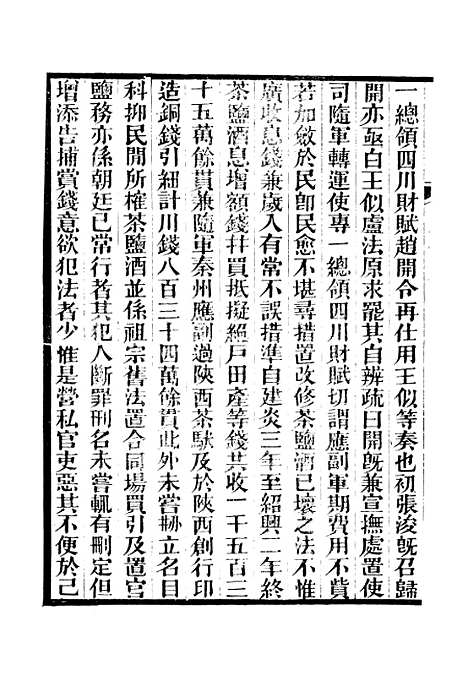 一總領四川財賦趙開令再仕用王似等奏也初張浚旣召歸
開亦亟白王似盧法原求罷其自辨疏曰開旣兼宣撫處置使
司隨軍轉運使專一總領四川財賦切謂應副軍期費用不貲
若加斂於民卽民愈不堪尋措置改修茶鹽酒已壞之法不惟
廣收息錢兼歲入有常不誤措準自建炎三年至紹興二年終
茶鹽酒息增額錢幷買抵擬絕戸田產等錢共收一千五百三
十五萬餘貫兼隨軍秦州應副過陝西茶馱及於陝西創行印
造銅錢引細計川錢八百三十四萬餘貫此外未嘗刱立名目
科抑民間所榷茶鹽酒並係祖宗舊法置合同場買引及置官
鹽務亦係朝廷已常行者其犯人斷罪刑名未嘗輒有刪定但
增添告捕賞錢意欲犯法者少惟是營私官吏惡其不便於己